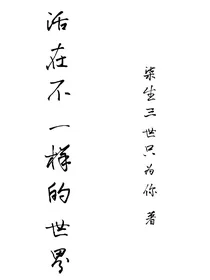 活在不一样的世界
柒尘三世只为你 著